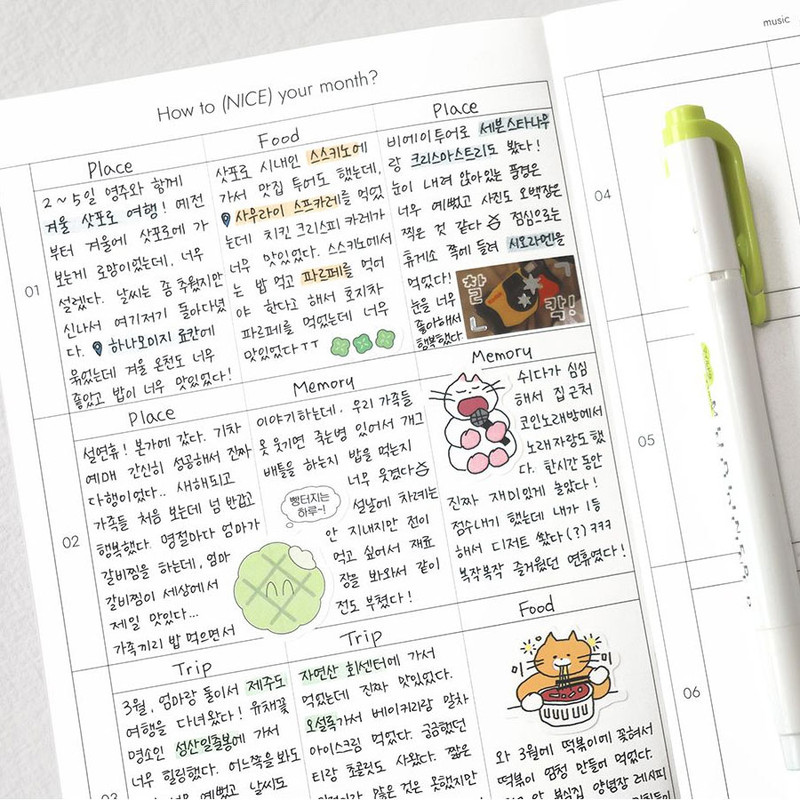 music
How to (NICE) your month?
01
Place
2~5일 영주와 함께
겨울 삿포로 여행! 예전
부터 겨울에 삿포로에 가
보는게 로망이었는데, 너무
설렜다. 날씨는 좀 추웠지만
신나서 여기저기 돌아다녔
다. 하나모미지 료칸에
묶었는데 겨울 온천도 너무
좋았고 밥이 너무 맛있었다!
Food
삿포로 시내인 스스키노에
가서 맛집 투어도 했는데,
사무라이 스프카레를 먹었
는데 치킨 크리스피 카레가
너무 맛있었다. 스스키노에서
는 밥 먹고 파르페를 먹어
야 한다고 해서 호지차
파르페를 먹었는데 너무
맛있었다ㅜㅜ
Place
비에이투어로 세븐스타나무
랑 크리스마스트리도 봤다!
눈이 내려 앉아있는 풍경은
너무 예뻤고 사진도 오백장은
찍은 것 같다 점심으로는
휴게소 쪽에 들려 시오라멘을
먹었다!
눈을 너무
좋아해서
행복했다.
찰
칵!
02
Place
설연휴! 본가에 갔다. 기차
예매 간신히 성공해서 진짜
다행이었다.. 새해되고
가족들 처음 보는데 넘 반갑고
행복했다. 명절마다 엄마가
갈비찜을 하는데, 엄마
갈비찜이 세상에서
제일 맛있다...
가족끼리 밥 먹으면서
Memory
이야기하는데, 우리 가족들
못 웃기면 죽는병 있어서 개그
배틀을 하는지 밥을 먹는지
너무 웃겼다
설날에 차례는
안 지내지만 전이
먹고 싶어서 재료
장을 봐와서 같이
전도 부쳤다!
빵터지는
하루~!
Memory
쉬다가 심심
해서 집 근처
코인노래방에서
노래자랑도 했
다. 한시간 동안
진짜 재미있게 놀았다!
점수내기 했는데 내가 1등
해서 디저트 쐈다(?) ㅋㅋㅋ
복작복작 즐거웠던 연휴였다!
03
Trip
3월, 엄마랑 둘이서 제주도
여행을 다녀왔다! 유채꽃
명소인 성산일출봉에 가서
너무 힐링했다. 어느쪽을 봐도
너무 예뻤고 날씨도
Trip
자연산 회센터에 가서
먹었는데 진짜 맛있었다.
오설록가서 베이커리랑 말차
아이스크림 먹었다. 궁금했던
티랑 초콜릿도 사왔다. 짧은
Food
와 3월에 떡볶이에 꽂혀서
떡볶이 엄청 만들어 먹었다.
분식집 양념장 레시피
04
05
06